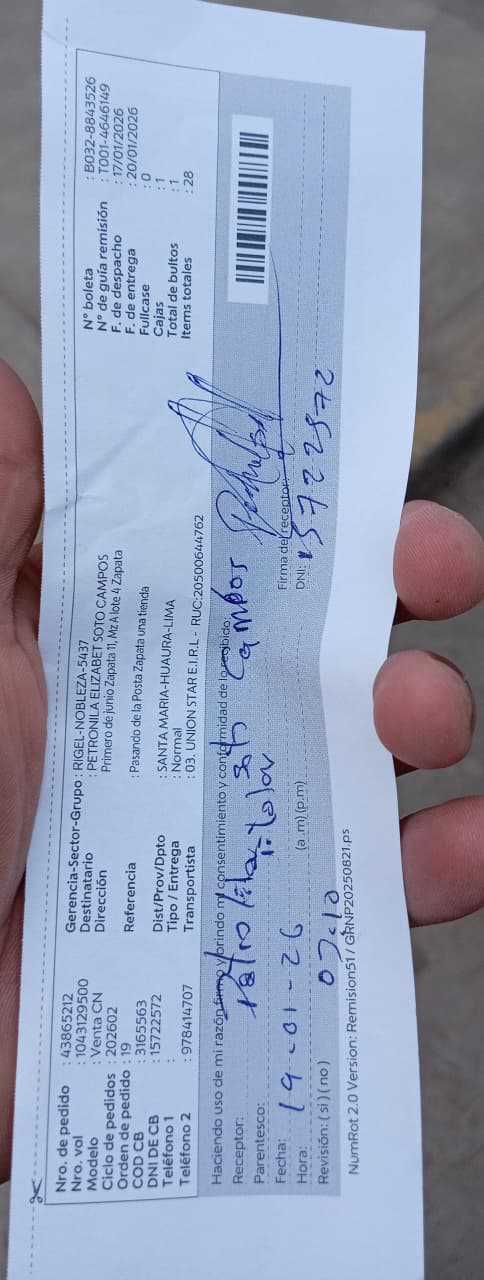 Nro. de pedido : 43865212
Nro. vol : 1043129500
Modelo : Venta CN
Ciclo de pedidos : 202602
Orden de pedido : 19
COD CB : 3165563
DNI DE CB : 15722572
Teléfono 1 :
Teléfono 2 : 978414707
Gerencia-Sector-Grupo : RIGEL-NOBLEZA-5437
Destinatario : PETRONILA ELIZABET SOTO CAMPOS
Dirección Primero de junio Zapata 11, Mz A lote 4 Zapata
Referencia : Pasando de la Posta Zapata una tienda
Dist/Prov/Dpto : SANTA MARIA-HUAURA-LIMA
Tipo / Entrega : Normal
Transportista : 03. UNION STAR E.I.R.L - RUC:20500644762
N° boleta : B032-8843526
N° de guía remisión : T001-4646149
F. de despacho : 17/01/2026
F. de entrega : 20/01/2026
Fullcase : 0
Cajas : 1
Total de bultos : 1
Items totales : 28
Haciendo uso de mi razón firmo y brindo mi consentimiento y conformidad de lo recibido:
Receptor: Soto Campos
Parentesco: Titular
Fecha: 19-01-26
Firma del receptor:
Hora: 07:10 (a.m) (p.m)
DNI: 15722572
Revisión: ( si ) ( no )
NumRot 2.0 Version: Remision51 / GRNP20250821.ps